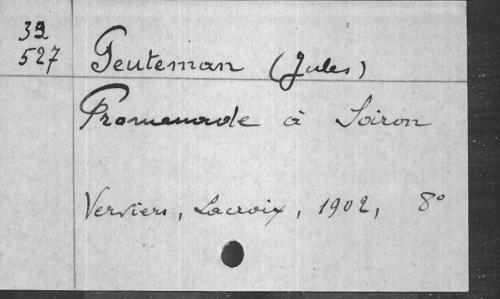 32
527
Peuteman (Jules)
Promenade à Soiron
Verviers, Lacroix, 1902, 8°